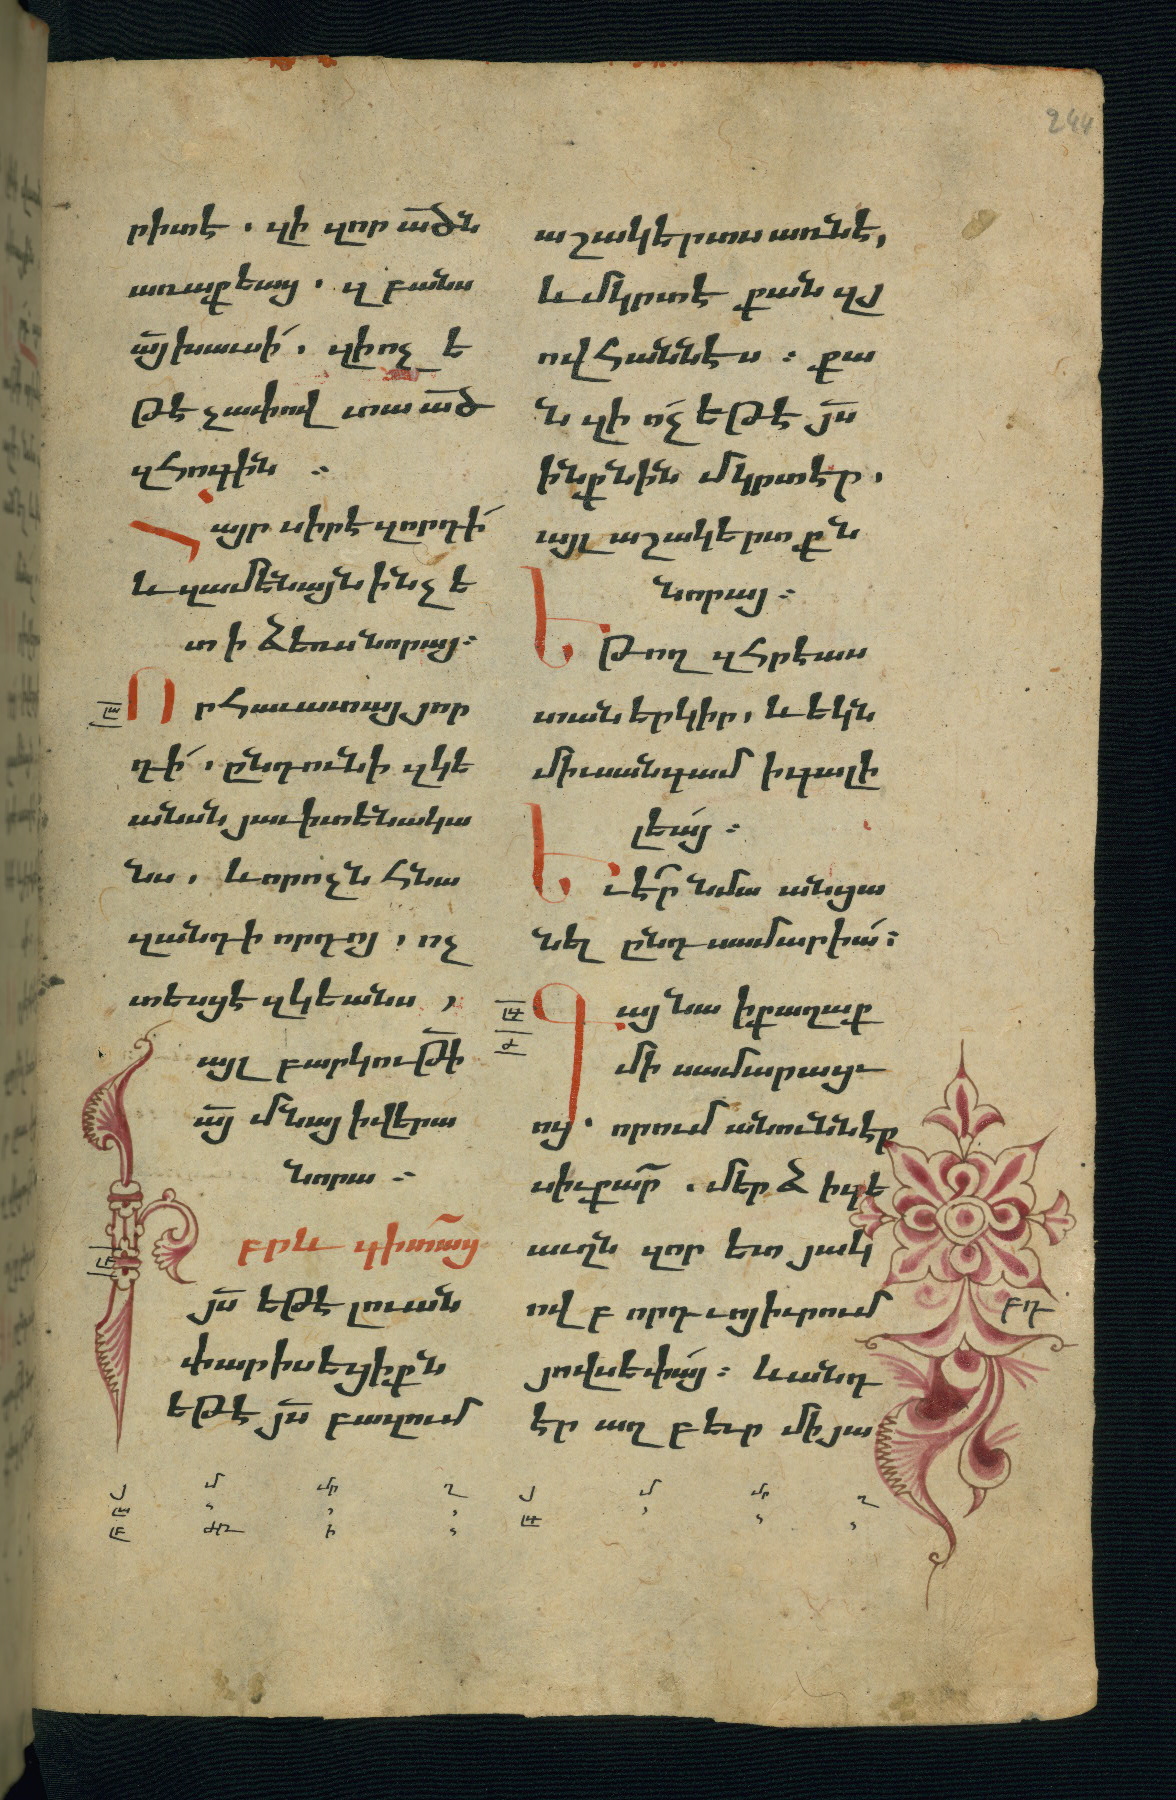 244
րիտէ . զի զոր ա՟ծն
առաքեաց . զբանս
ա՟յ խաւսի . զի ոչ ե
թէ չափով տա ա՟ծ
զհոգին ։
Հայր սիրէ զորդի
և զամենայն ինչ ե
տ ի ձեռս նորայ ։
Որ հաւատայ յոր
դի , ընդունի զկե
անսն յաւիտենակա
նս , և որ ոչն հնա
զանդի որդոյ , ոչ
տեսցէ զկեանս ,
այլ բարկութի՟
ա՟յ մնայ ի վերա
նորա ։
Իբրև գիտա՟ց
յ՟ս եթէ լուան
փարիսեցիքն
եթէ յ՟ս բազում
աշակերտս առնէ ,
և մկրտէ քան զյ
ովհաննէս ։ քա
ն զի ոչ եթէ յ՟ս
ինքնին մկրտէր ,
այլ աշակերտքն
նորայ ։
Եթող զհրէաս
տան երկիր , և եկն
միւսանգամ ի գալի
լեայ ։
Եւ է՟ր նմա անցա
նել ընդ սամարիա ։
Գայ նա ի քաղաք
մի սամարաց
ոց . որում անուն նեք
սիւքա՟ր . մերձ ի գե
աւղն զոր ետ յակ
ովբ որդւոյ իւրում
յովսեփայ ։ և անդ
էր աղբեւր մի յա
բղ
յ մ մր ղ
յ մ մր ղ